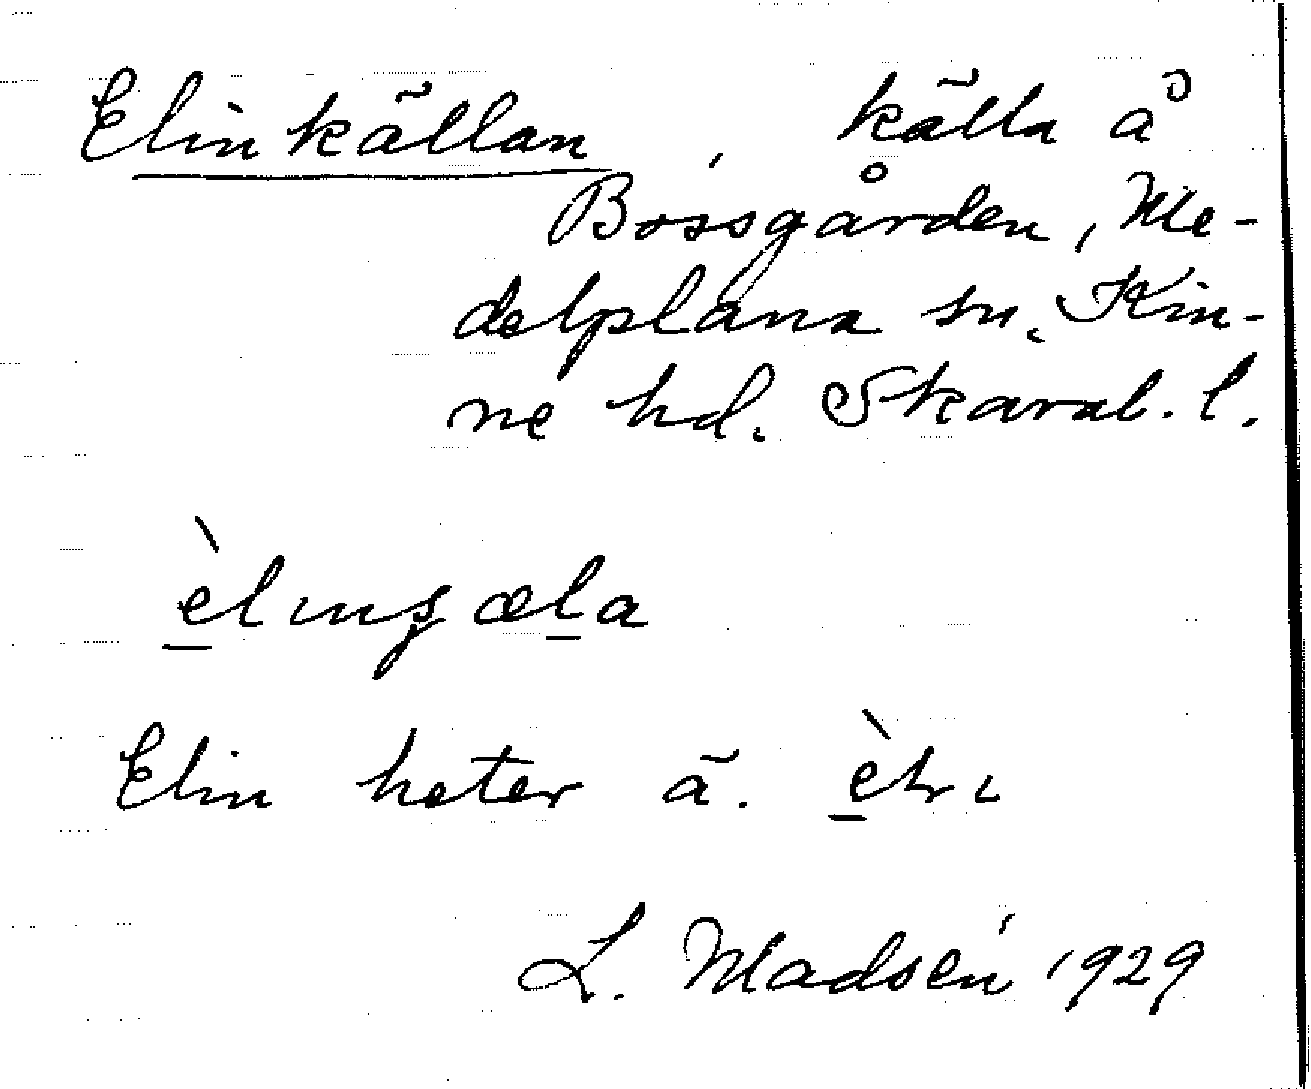 Elinkällan, källa å
Bossgården, Me-
delplana sn. Kin-
ne hd. Skarab. l.
Elin heter ä.
L. Madsén 1929